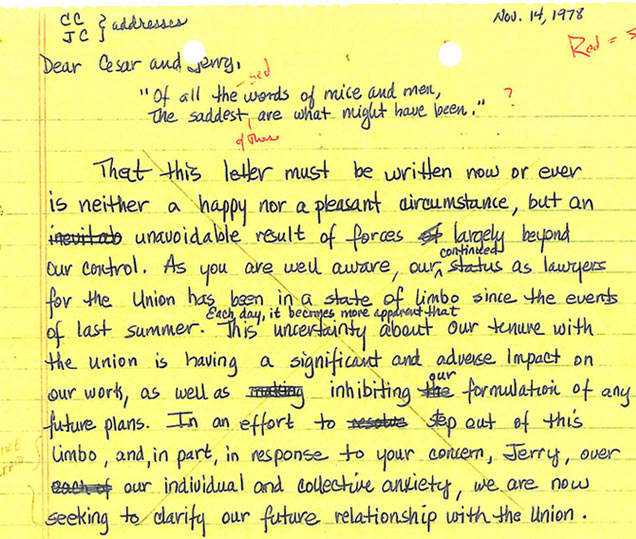 CC
JC } addresses
Nov. 14, 1978
Red = s
Dear Cesar and Jerry,
sad
"Of all the words of mice and men,
The saddest, are what might have been." ?
of these
That this letter must be written now or ever
is neither a happy nor a pleasant circumstance, but an
inevitab unavoidable result of forces of largely beyond
continued
our control. As you are well aware, our status as lawyers
for the Union has been in a state of limbo since the events
Each day, it becomes more apparent that
of last summer. This uncertainty about our tenure with
the union is having a significant and adverse impact on
our
our work, as well as making inhibiting the formulation of any
future plans. In an effort to resolve step out of this
limbo, and, in part, in response to your concern, Jerry, over
each of our individual and collective anxiety, we are now
seeking to clarify our future relationship with the Union.